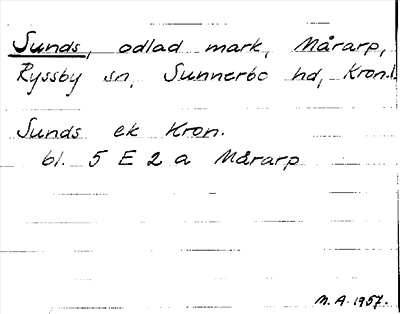 Sunds, odlad mark, Mårarp,
Ryssby sn, Sunnerbo hd, Kron.l.
Sunds ek Kron.
bl. 5 E 2 a Mårarp
M.A. 1957.